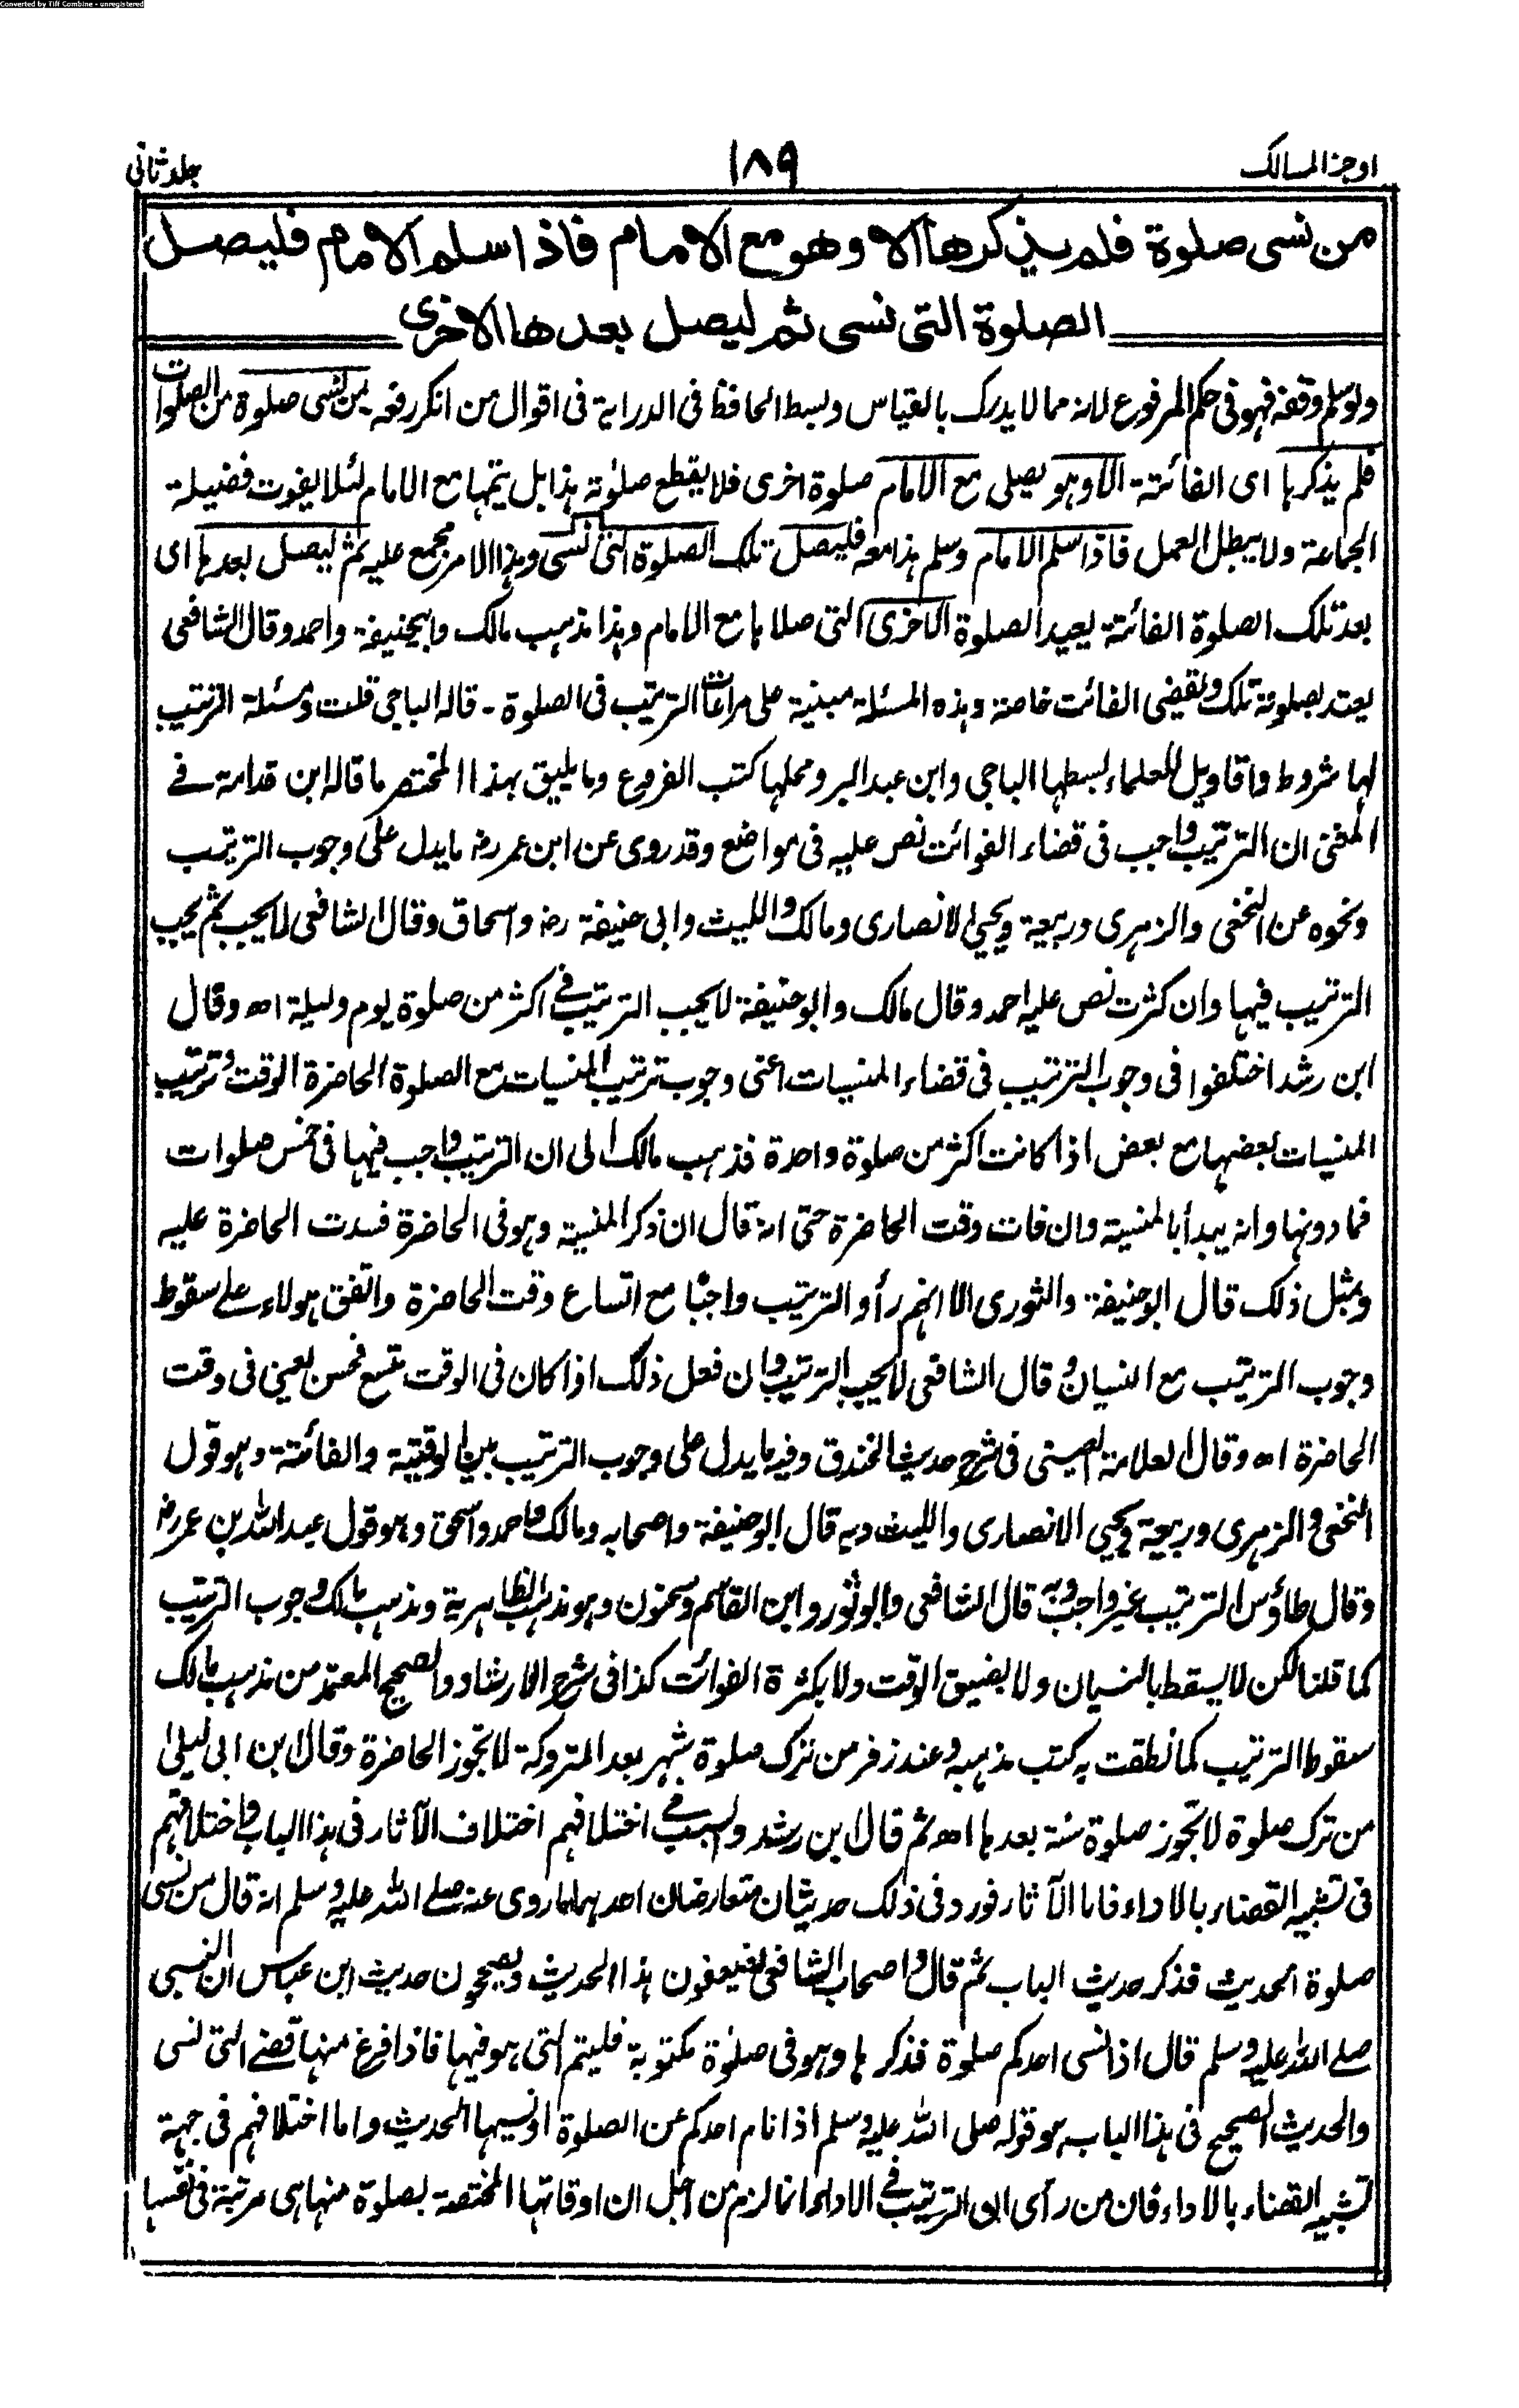 Converted by Tiff Combine - unregistered
اوجز المسالك
١٨٩
جلد ثانى
من نسى صلوة فلم يذكرها الا وهو مع الامام فاذا سلم الامام فليصل
الصلوة التى نسى ثم ليصل بعدها الاخرى
ولو سلم وقفه فهو فى حكم المرفوع لانه مما لا يدرك بالقياس وبسط الحافظ فى الدراية فى اقوال من انكر رفعه ـ من نسى صلوة من الصلوات
فلم يذكرها اى الفائتة ـ الا وهو يصلى مع الامام صلوة اخرى فلا يقطع صلوته هذا بل يتمها مع الامام لئلا يفوت فضيلة
الجماعة ولا يبطل العمل فاذا سلم الامام وسلم هذا معه فليصل تلك الصلوة التى نسى وهذا الامر مجمع عليه ثم ليصل بعدها اى
بعد تلك الصلوة الفائتة يعيد الصلوة الاخرى التى صلاها مع الامام وهذا مذهب مالك وابيحنيفة واحمد وقال الشافعى
يعتد بصلوته تلك ويقضى الفائت خاصة وهذه المسئلة مبنية على مراعات الترتيب فى الصلوة ـ قاله الباجى قلت ومسئلة الترتيب
لها شروط واقاويل للعلماء بسطها الباجى وابن عبد البر ومحلها كتب الفروع وما يليق بهذا المختصر ما قاله ابن قدامة فے
المغنى ان الترتيب واجب فى قضاء الفوائت نص عليه فى مواضع وقد روى عن ابن عمر رضـ ما يدل على وجوب الترتيب
ونحوه عن النخعى والزهرى وربيعة ويحيىٰ الانصارى ومالك والليث وابى حنيفة رضـ واسحاق وقال الشافعى لا يجب ثم يجب
الترتيب فيها وان كثرت نص عليه احمد وقال مالك وابو حنيفة لا يجب الترتيب فے اكثر من صلوة يوم وليلة اھ وقال
ابن رشد اختلفوا فى وجوب الترتيب فى قضاء المنسيات اعنى وجوب ترتيب المنسيات مع الصلوة الحاضرة الوقت وترتيب
المنسيات بعضها مع بعض اذا كانت اكثر من صلوة واحدة فذهب مالك الى ان الترتيب واجب فيها فى خمس صلوات
فما دونها وانه يبدأ بالمنسية وان فات وقت الحاضرة حتى انه قال ان ذكر المنسية وهو فى الحاضرة فسدت الحاضرة عليه
وبمثل ذلك قال ابو حنيفة والثورى الا انهم رأوا الترتيب واجبًا مع اتساع وقت الحاضرة واتفق هولاء علے سقوط
وجوب الترتيب مع النسيان وقال الشافعى لا يجب الترتيب وان فعل ذلك اذا كان فى الوقت متسع فحسن يعنى فى وقت
الحاضرة اھ وقال العلامة العينى فى شرح حديث الخندق وفيه ما يدل على وجوب الترتيب بين الوقتية والفائتة وهو قول
النخعى والزهرى وربيعة ويحيى الانصارى والليث وبه قال ابو حنيفة واصحابه ومالك واحمد واسحق وهو قول عبد الله بن عمر رضـ
وقال طاؤس الترتيب غير واجب وبه قال الشافعى وابو ثور وابن القاسم وسحنون وهو مذهب الظاهرية ومذهب مالك وجوب الترتيب
كما قلنا لكن لا يسقط بالنسيان ولا بضيق الوقت ولا بكثرة الفوائت كذا فى شرح الارشاد والصحيح المعتمد من مذهب مالك
سقوط الترتيب كما نطقت به كتب مذهبه وعند زفر من ترك صلوة شهر بعد المتروكة لا تجوز الحاضرة وقال ابن ابى ليلىٰ
من ترك صلوة لا تجوز صلوة سنة بعدها اھ ثم قال ابن رشد والسبب فے اختلافهم اختلاف الآثار فى هذا الباب واختلافهم
فى تشبيه القضاء بالاداء فاما الآثار فورد فى ذلك حديثان متعارضان احدهما ما روى عنه صلے الله عليه وسلم انه قال من نسى
صلوة الحديث فذكر حديث الباب ثم قال واصحاب الشافعى يضعفون هذا الحديث ويصححون حديث ابن عباس ان النبى
صلے الله عليه وسلم قال اذا نسى احدكم صلوة فذكرها وهو فى صلوٰة مكتوبة فليتم التى هو فيها فاذا فرغ منها قضے التى نسى
والحديث الصحيح فى هذا الباب هو قوله صلى الله عليه وسلم اذا نام احدكم عن الصلوة او نسيها الحديث واما اختلافهم فى جهة
تشبيه القضاء بالاداء فان من رأى ان الترتيب فے الاداء انما لزم من اجل ان اوقاتها المختصة بصلوة منها هى مرتبة فى نفسها